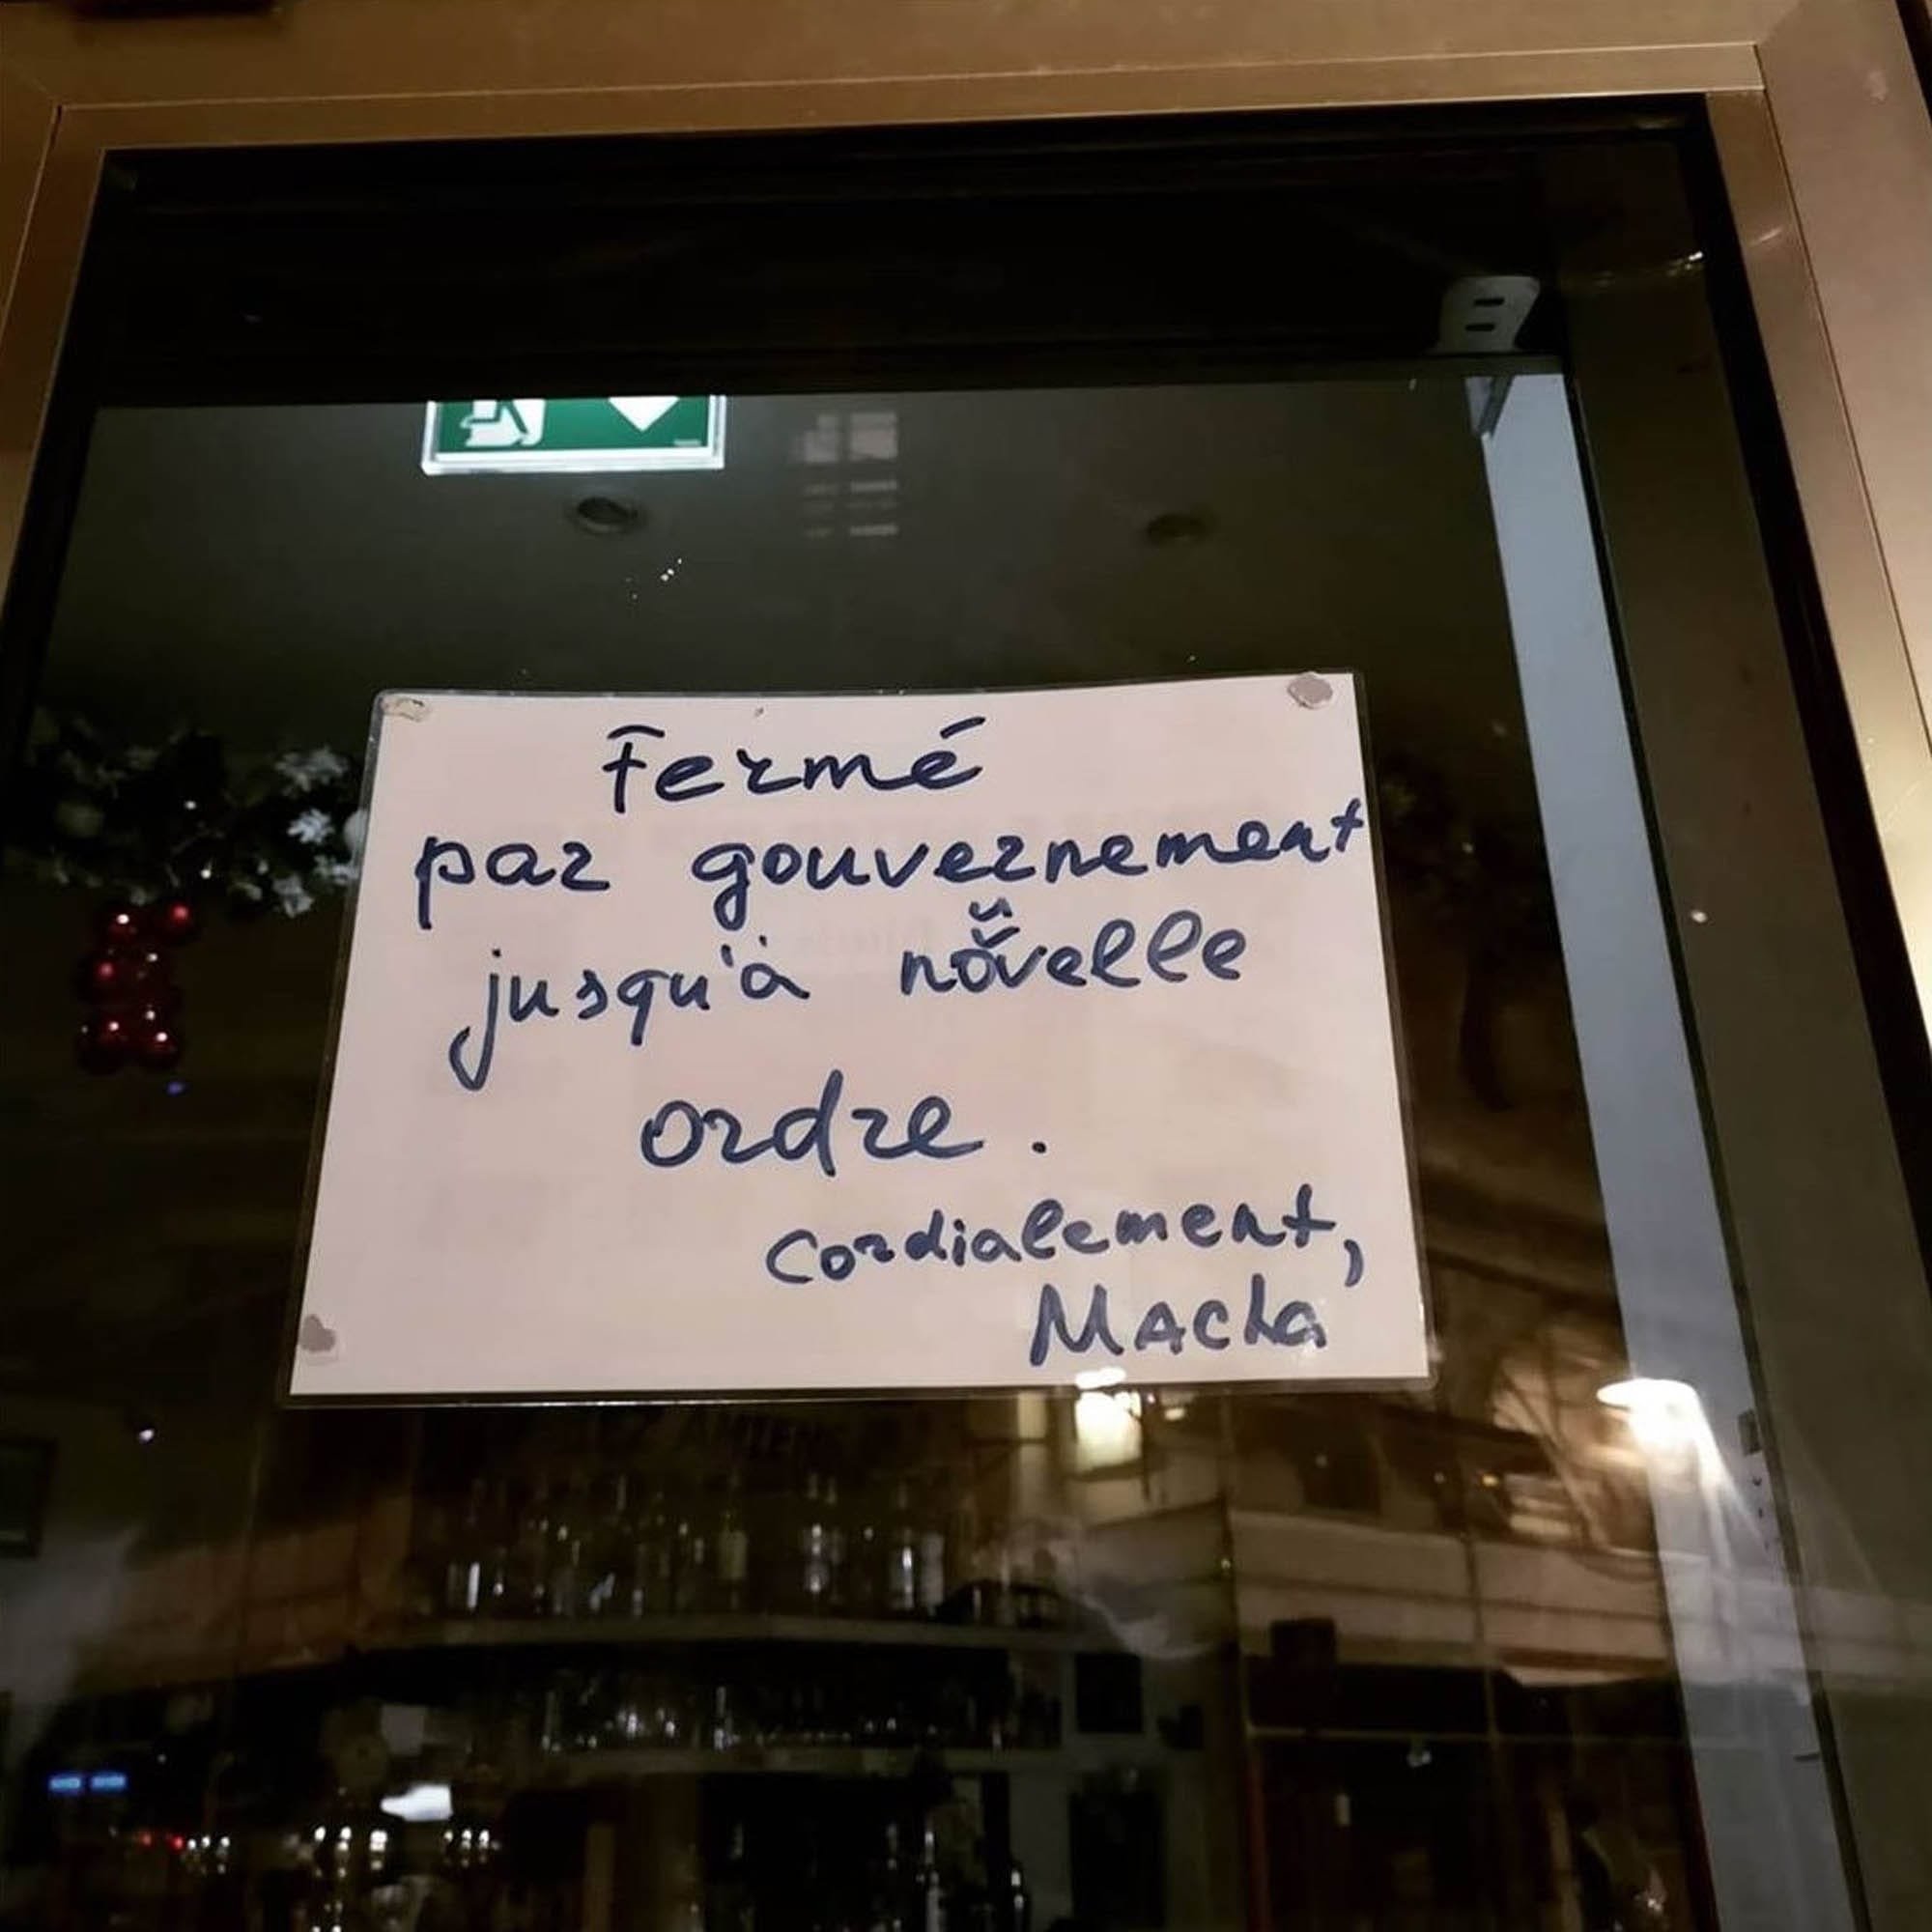 Fermé
par gouvernement
jusqu'à nouvelle
ordre.
Cordialement,
Macha